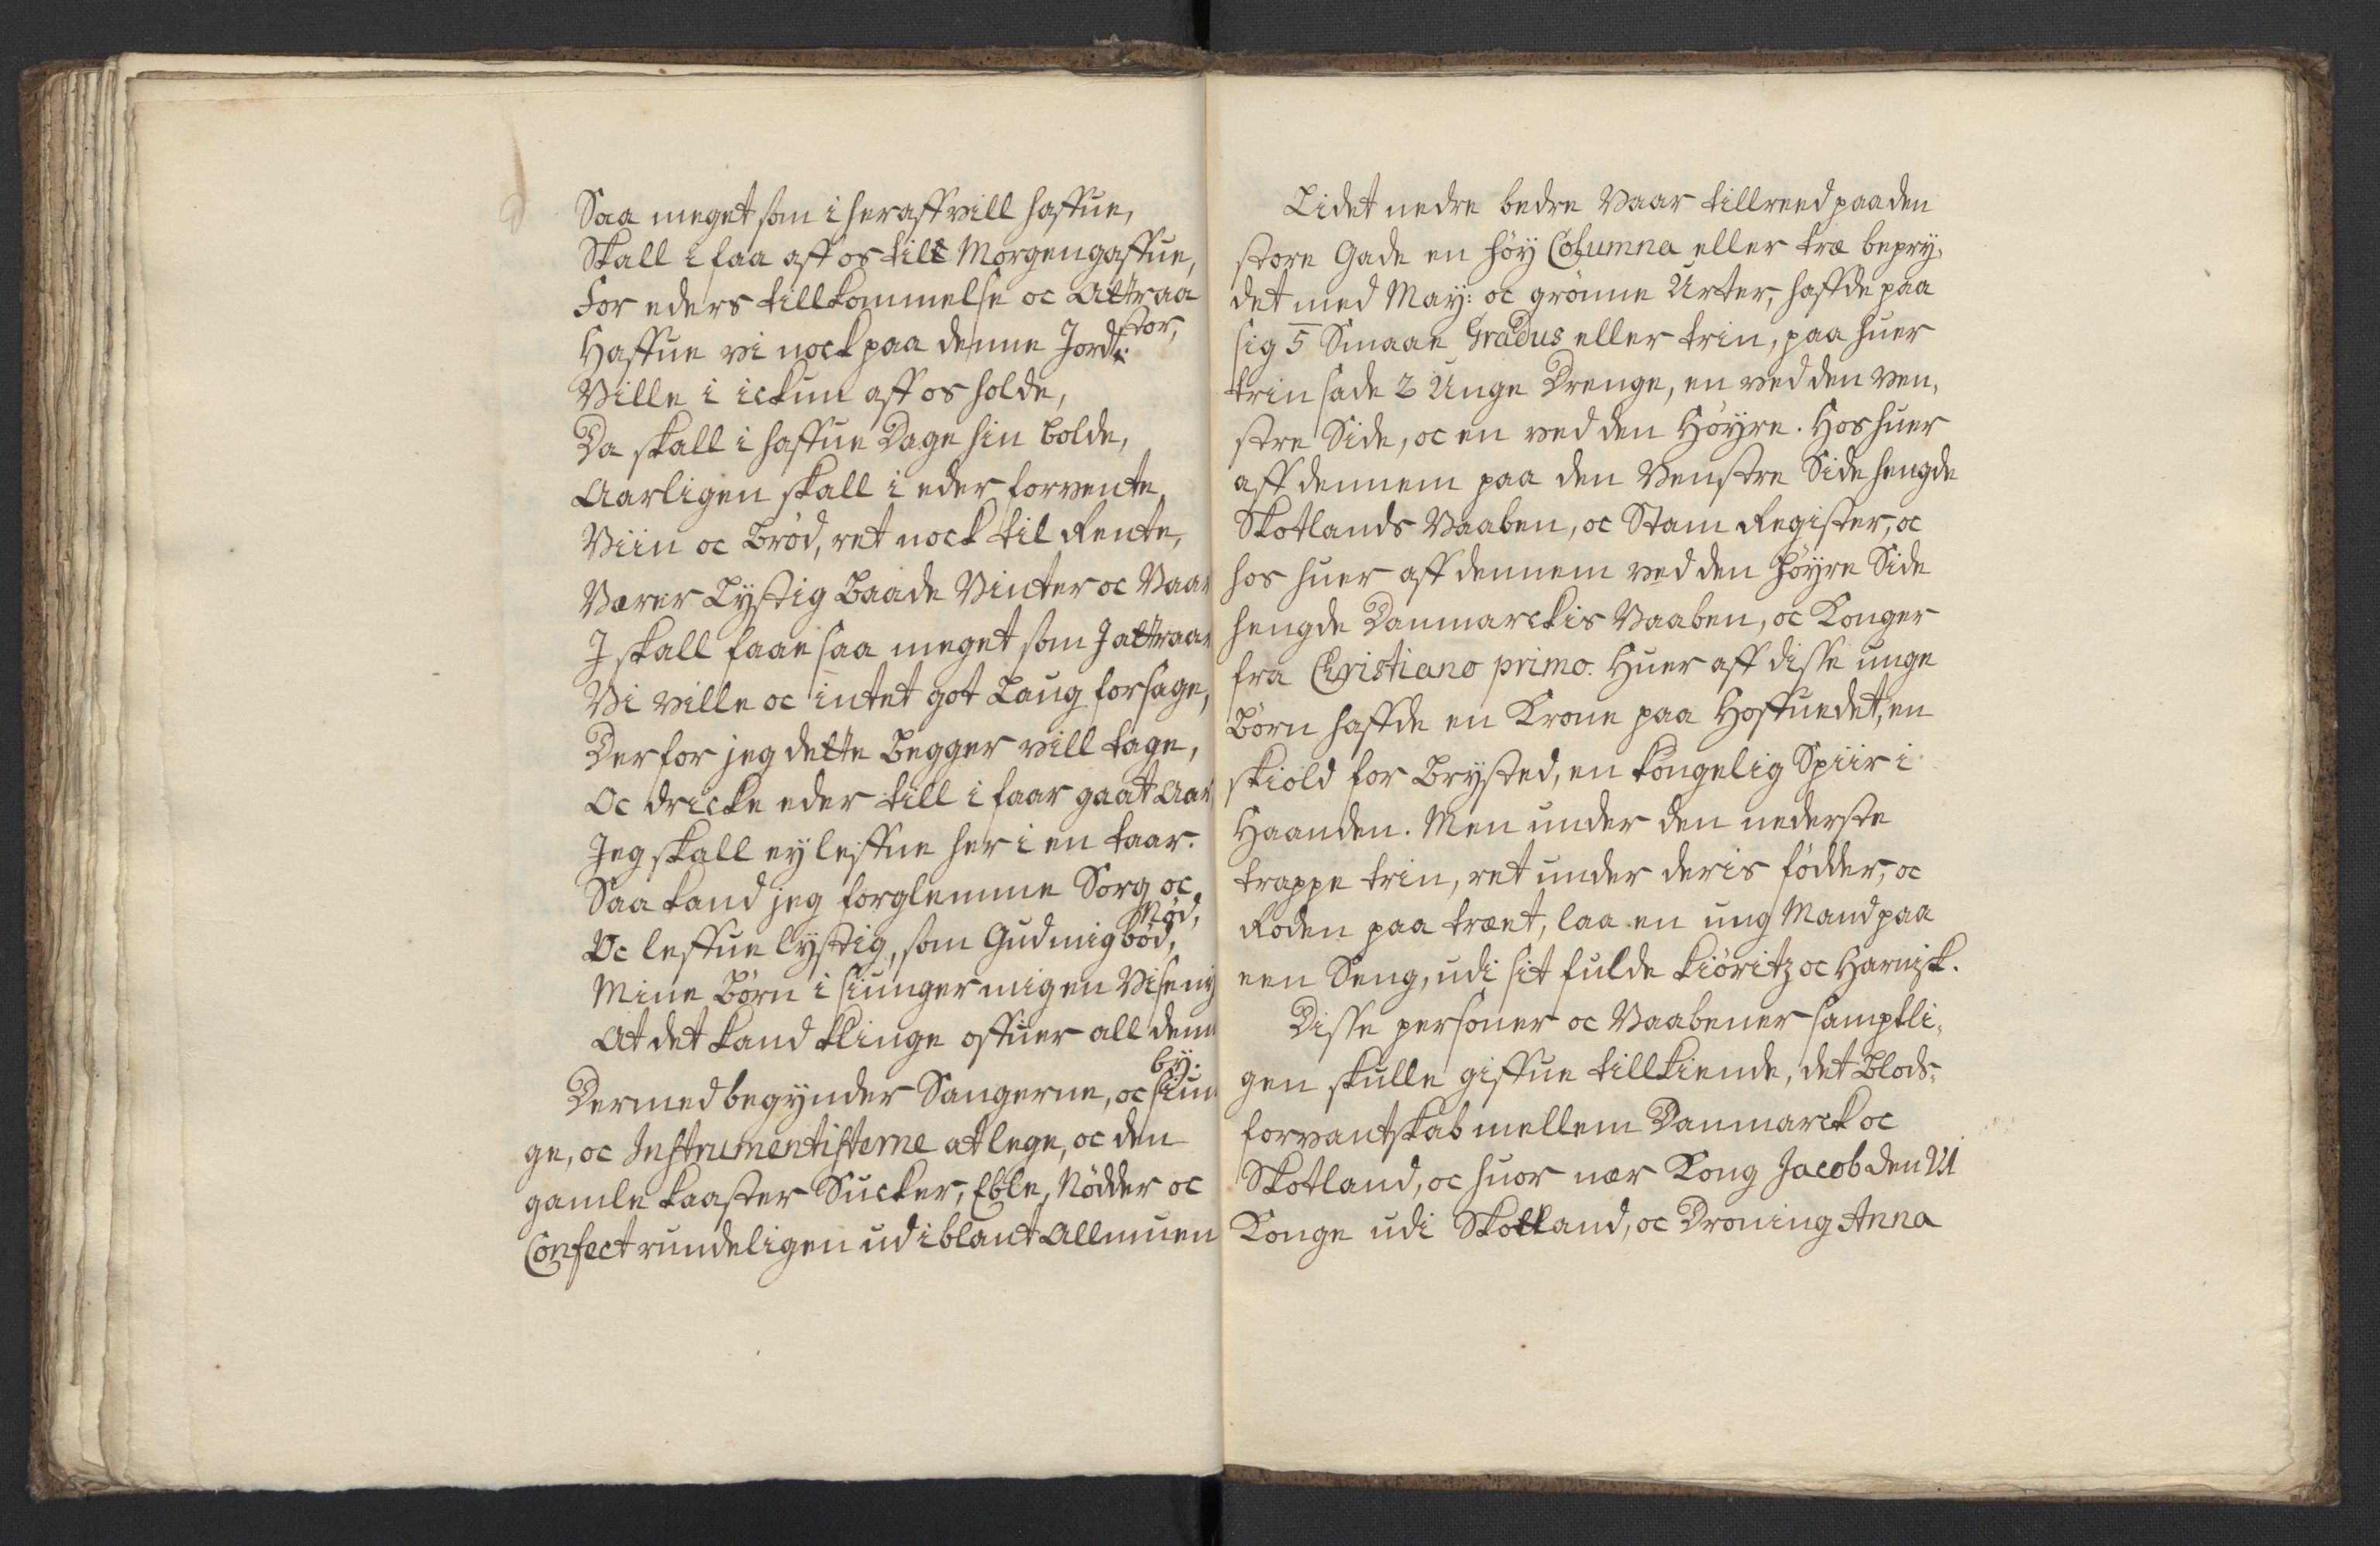 Saa meget som i heraff vill haffue,
Skall i faa aff os till Morgengaffue,
For eders tillkommelse oc Attraa
stor,
Haffue vi nock paa denne Jord.
Ville i ickun aff os holde,
Da skall i haffue Dage hin bolde,
Aarligen skall i eder forvente
Viin oc Brød, ret nock til Rente,
Værer Lystig Baade Vinter oc Vaar
J skall faae saa meget som J attraar
Vi ville oc intet got Laug forsage,
Der for jeg dette Begger vill tage,
Oc dricke eder till i faar gaat Aar
Jeg skall ey leffne her i en taar.
Saa kand jeg forglemme Sorg oc
Nød,
Oc leffue lystig, som Gud mig bød,
Mine Børn i siunger mig en Vise ny
At det kand klinge offuer all denne
by.
Dermed begynder Sangerne, oc siun
ge, oc Instrumentisterne at lege, oc den
gamle kaaster Sucker, Eble, Nødder oc
Confect rundeligen ud iblant Allmuen
Lidet nedre bedre Vaar tillreed paa den
store Gade en høy Columna eller træ bepry-
det med May: oc grønne Urter, haffde paa
sig 5 Smaae Gradus eller trin, paa huer
trin sade 2 Unge Drenge, en ved den ven-
stre Side, oc en ved den Høyre. Hos huer
aff dennem paa den Venstre Side hengde
Skotlands Vaaben, oc Stam Register, oc
hos huer aff dennem ved den Høyre Side
hengde Danmarckis Vaaben, oc Konger
fra Christiano primo. Huer aff disse unge
Børn haffde en Krone paa Hoffuedet, en
skiold for Brysted, en kongelig Spiir i
Haanden. Men under den nederste
trappe trin, ret under deris fødder, oc
Roden paa træet, laa en ung Mand paa
een Seng, udi sit fulde kiøritz oc Harnisk.
Disse personer oc Vaabener samptli-
gen skulle giffue tillkiende, det Blods-
forvantskab mellem Danmarck oc
Skotland, oc huor nær Kong Jacob den VI
Konge udi Skotland, oc Droning Anna